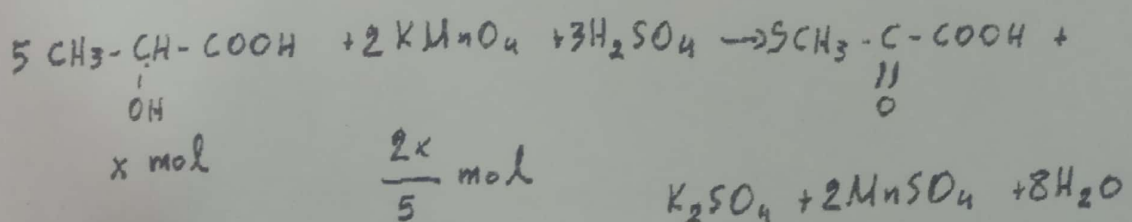 5 CH3-CH-COOH +2KMnO4 +3H2SO4 → 5CH3-C-COOH +
OH
O
x mol
2x/5 mol
K2SO4 +2MnSO4 +8H2O